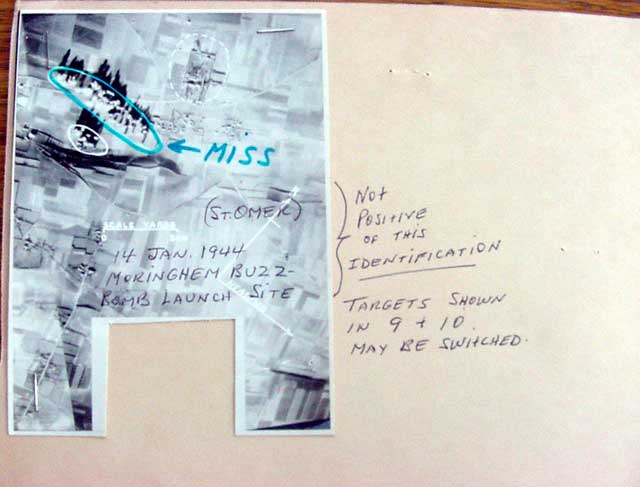 ← MISS
(ST. OMER)
SCALE YARDS
0
14 JAN. 1944
MORINGHEM BUZZ-
BOMB LAUNCH SITE
NOT
POSITIVE
OF THIS
IDENTIFICATION
TARGETS SHOWN
IN 9 + 10.
MAY BE SWITCHED.